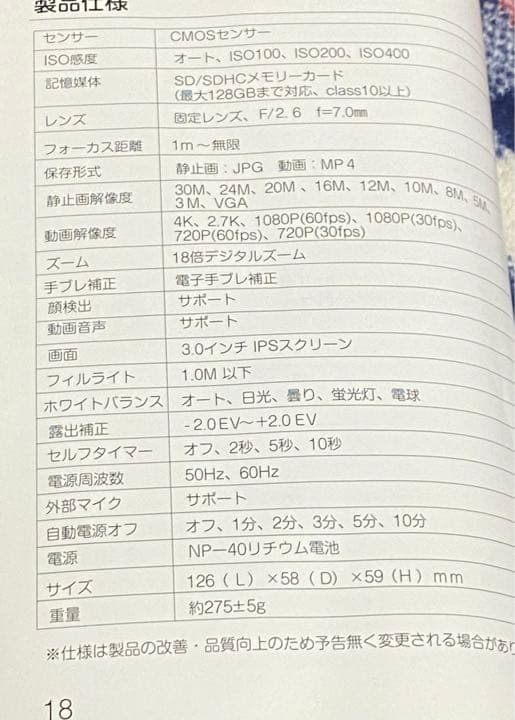 製品仕様
センサー CMOSセンサー
ISO感度 オート、ISO100、ISO200、ISO400
記憶媒体 SD/SDHCメモリーカード
(最大128GBまで対応、class10以上)
レンズ 固定レンズ、F/2.6 f=7.0mm
フォーカス距離 1m～無限
保存形式 静止画：JPG 動画：MP4
静止画解像度 30M、24M、20M、16M、12M、10M、8M、5M、
3M、VGA
動画解像度 4K、2.7K、1080P(60fps)、1080P(30fps)、
720P(60fps)、720P(30fps)
ズーム 18倍デジタルズーム
手ブレ補正 電子手ブレ補正
顔検出 サポート
動画音声 サポート
画面 3.0インチ IPSスクリーン
フィルライト 1.0M 以下
ホワイトバランス オート、日光、曇り、蛍光灯、電球
露出補正 -2.0EV～+2.0 EV
セルフタイマー オフ、2秒、5秒、10秒
電源周波数 50Hz、60Hz
外部マイク サポート
自動電源オフ オフ、1分、2分、3分、5分、10分
電源 NP－40リチウム電池
サイズ 126（L）×58（D）×59（H）mm
重量 約275±5g
※仕様は製品の改善・品質向上のため予告無く変更される場合があり
18